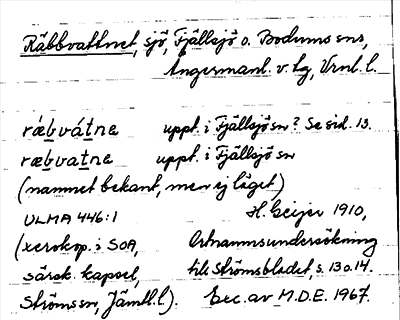 Räbbvattnet, sjö, Fjällsjö o. Bodums snr,
Ångermanl. v. hg, Vrnl. l.
rǽbvátne uppt. i Fjällsjö sn? Se sid. 13.
ræbvatne uppt. i Fjällsjö sn
(namnet bekant, men ej läget)
ULMA 446:1 H. Geijer 1910,
(xerokop. i SOA, Ortnamnsundersökning
särsk. kapsel, till Strömsbladet, s. 13 o. 14.
Ströms sn, Jämtl. l). Exc. av M.D.E. 1967.